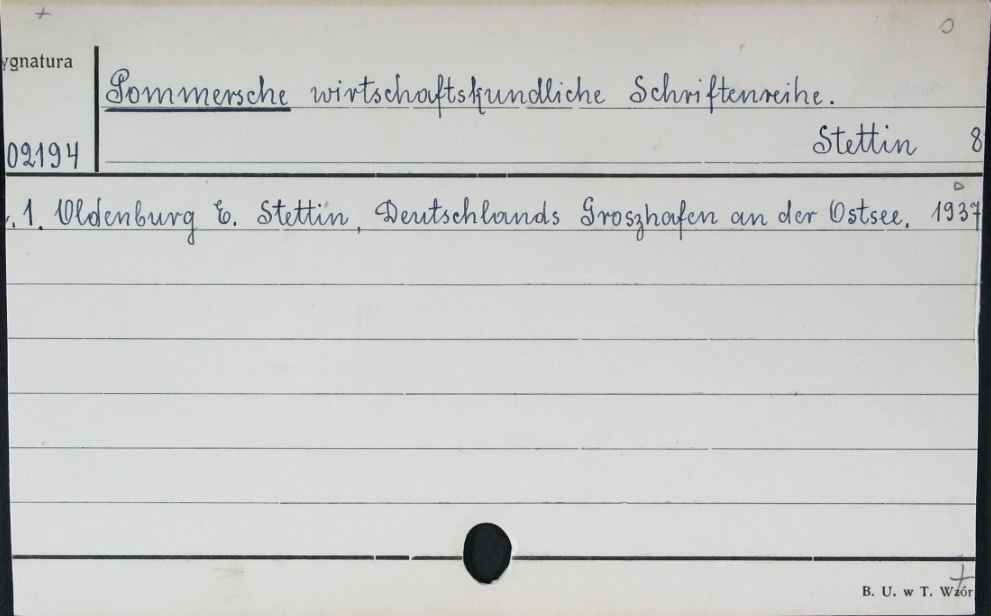 ygnatura
Pommersche wirtschaftskundliche Schriftenreihe.
02194
Stettin 8
.1. Oldenburg E. Stettin, Deutschlands Groszhafen an der Ostsee. 1937
B. U. w T. Wzór